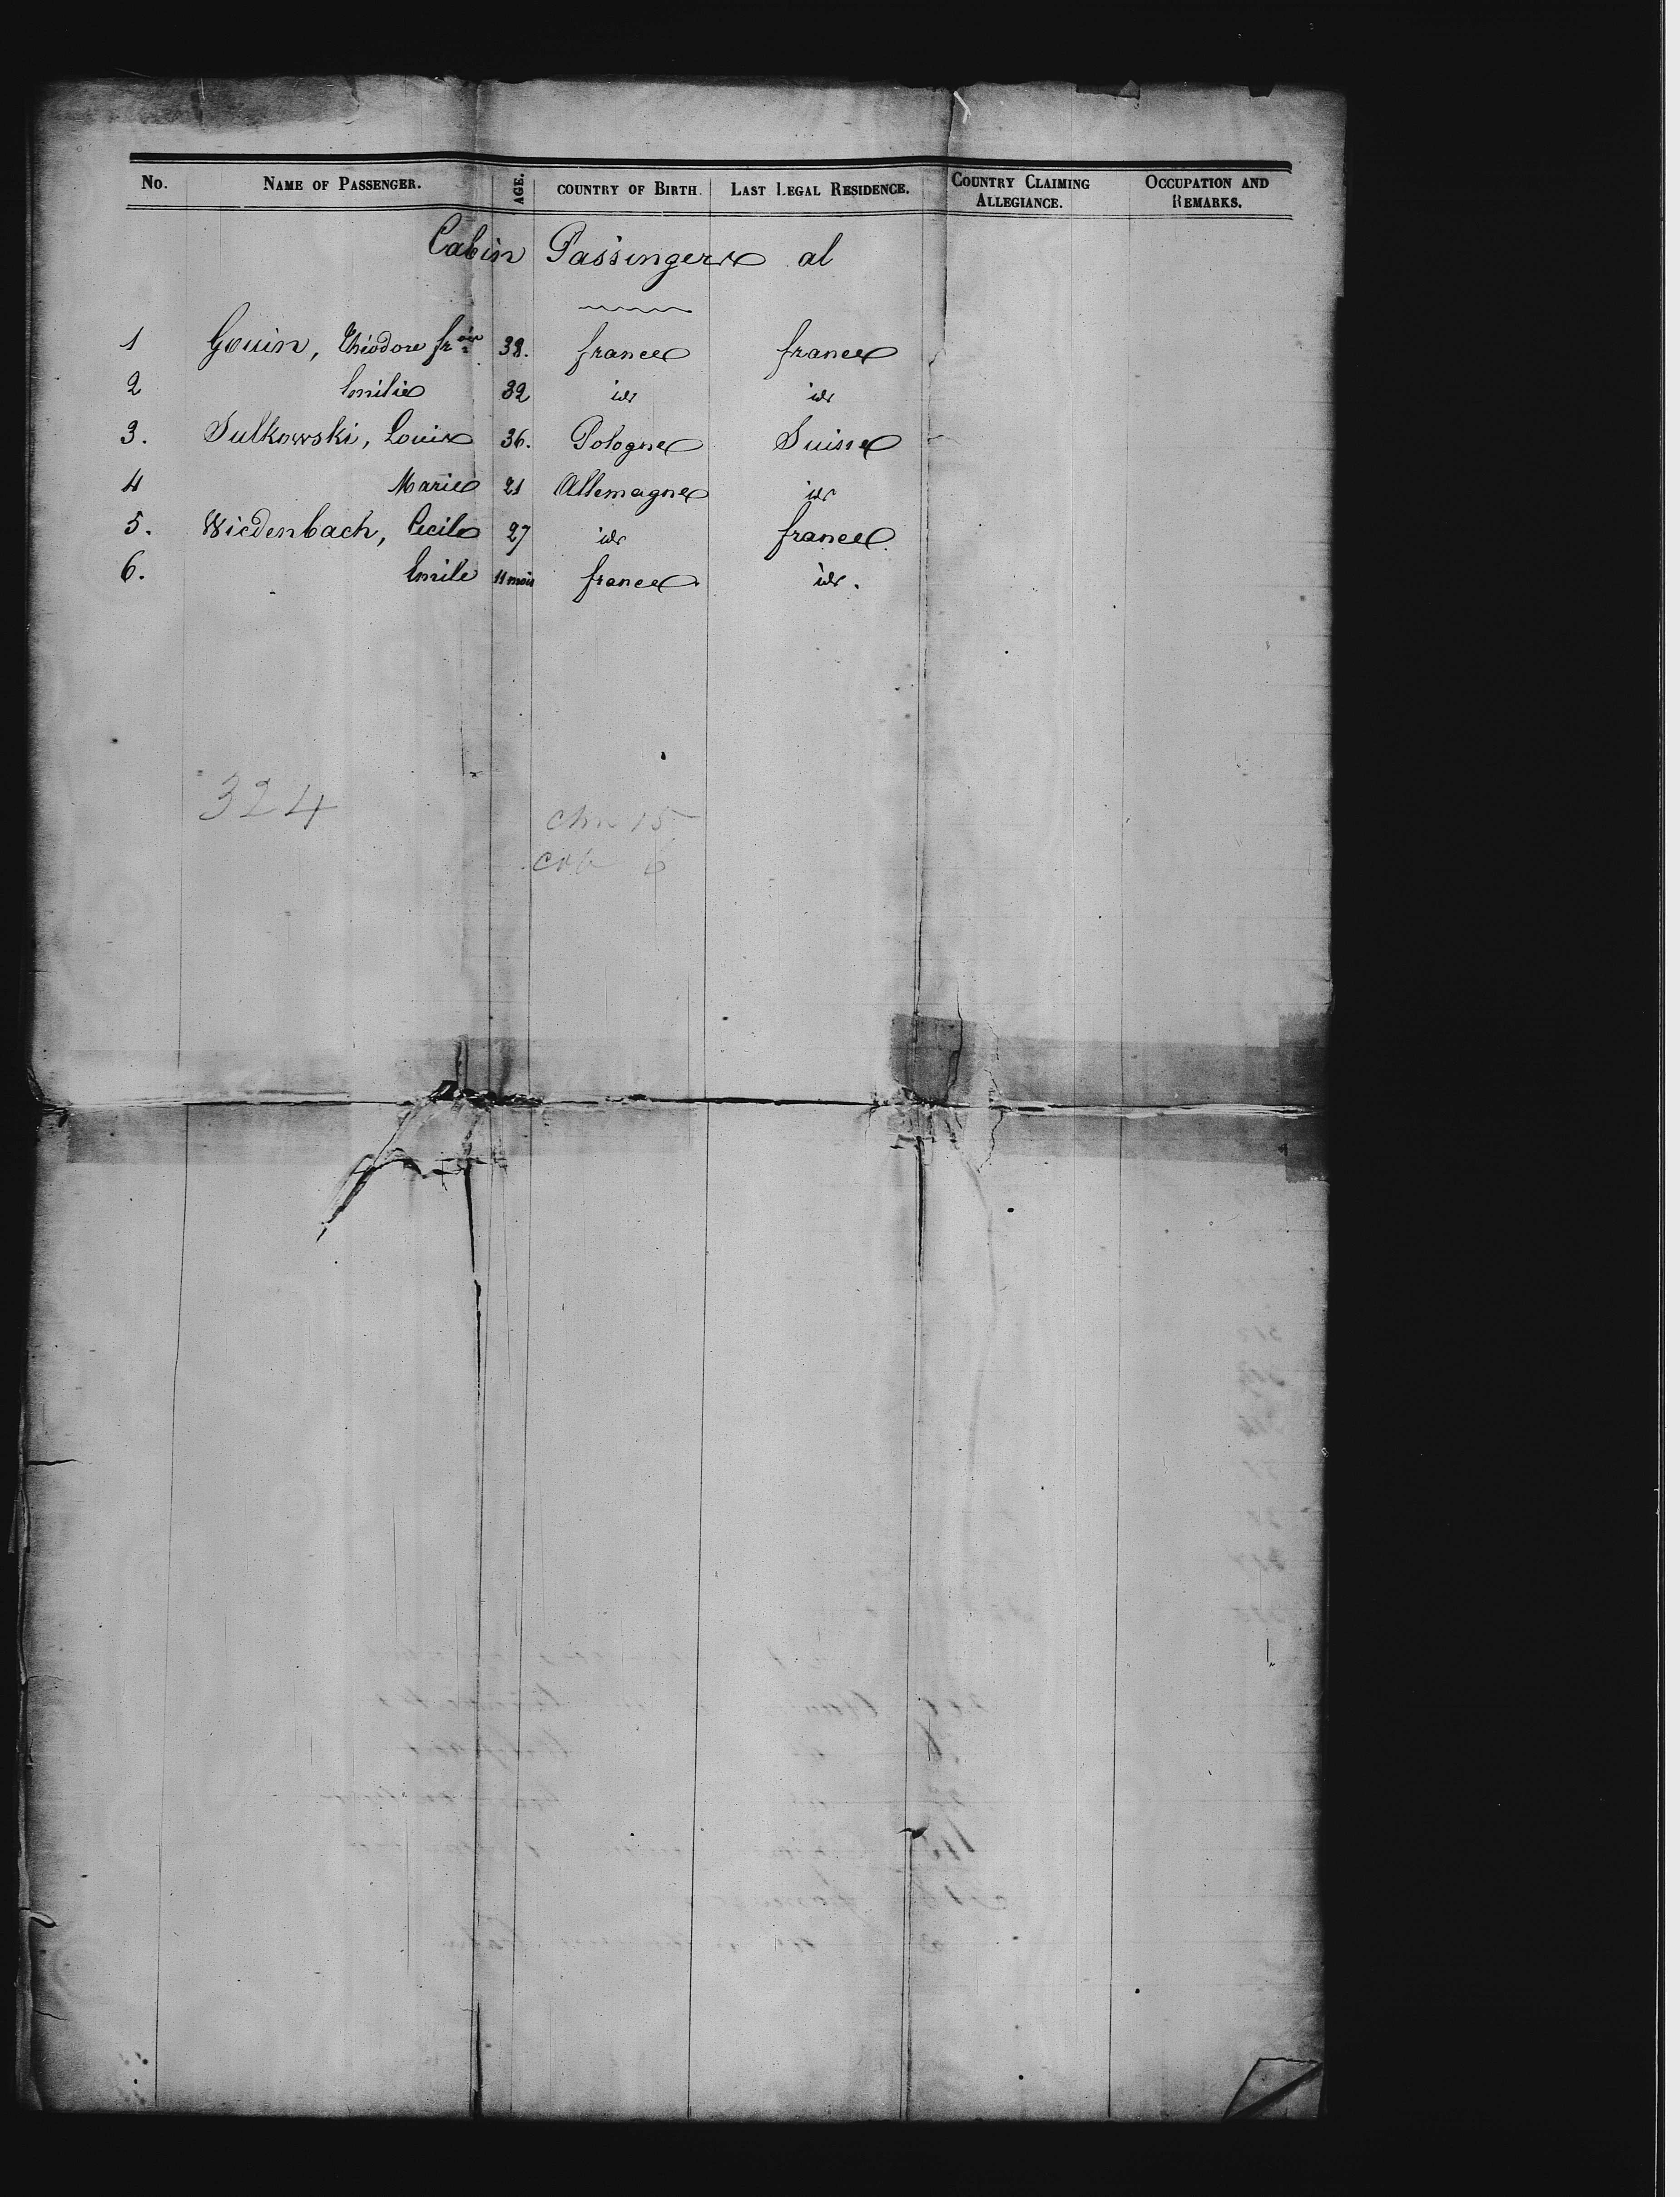 No. NAME OF PASSENGER. AGE. COUNTRY OF BIRTH. LAST LEGAL RESIDENCE. COUNTRY CLAIMING ALLEGIANCE. OCCUPATION AND REMARKS.
Cabin Passingers al
1 Gouin, Théodore frois 38. france france
2 Emilie 32 id. id.
3. Sulkowski, Louis 36. Pologne Suisse
4 Marie 21 Allemagne id.
5. Wiedenbach, Cecile 27 id. france.
6. Emile 11 mois france. id.
324
15
cab 6